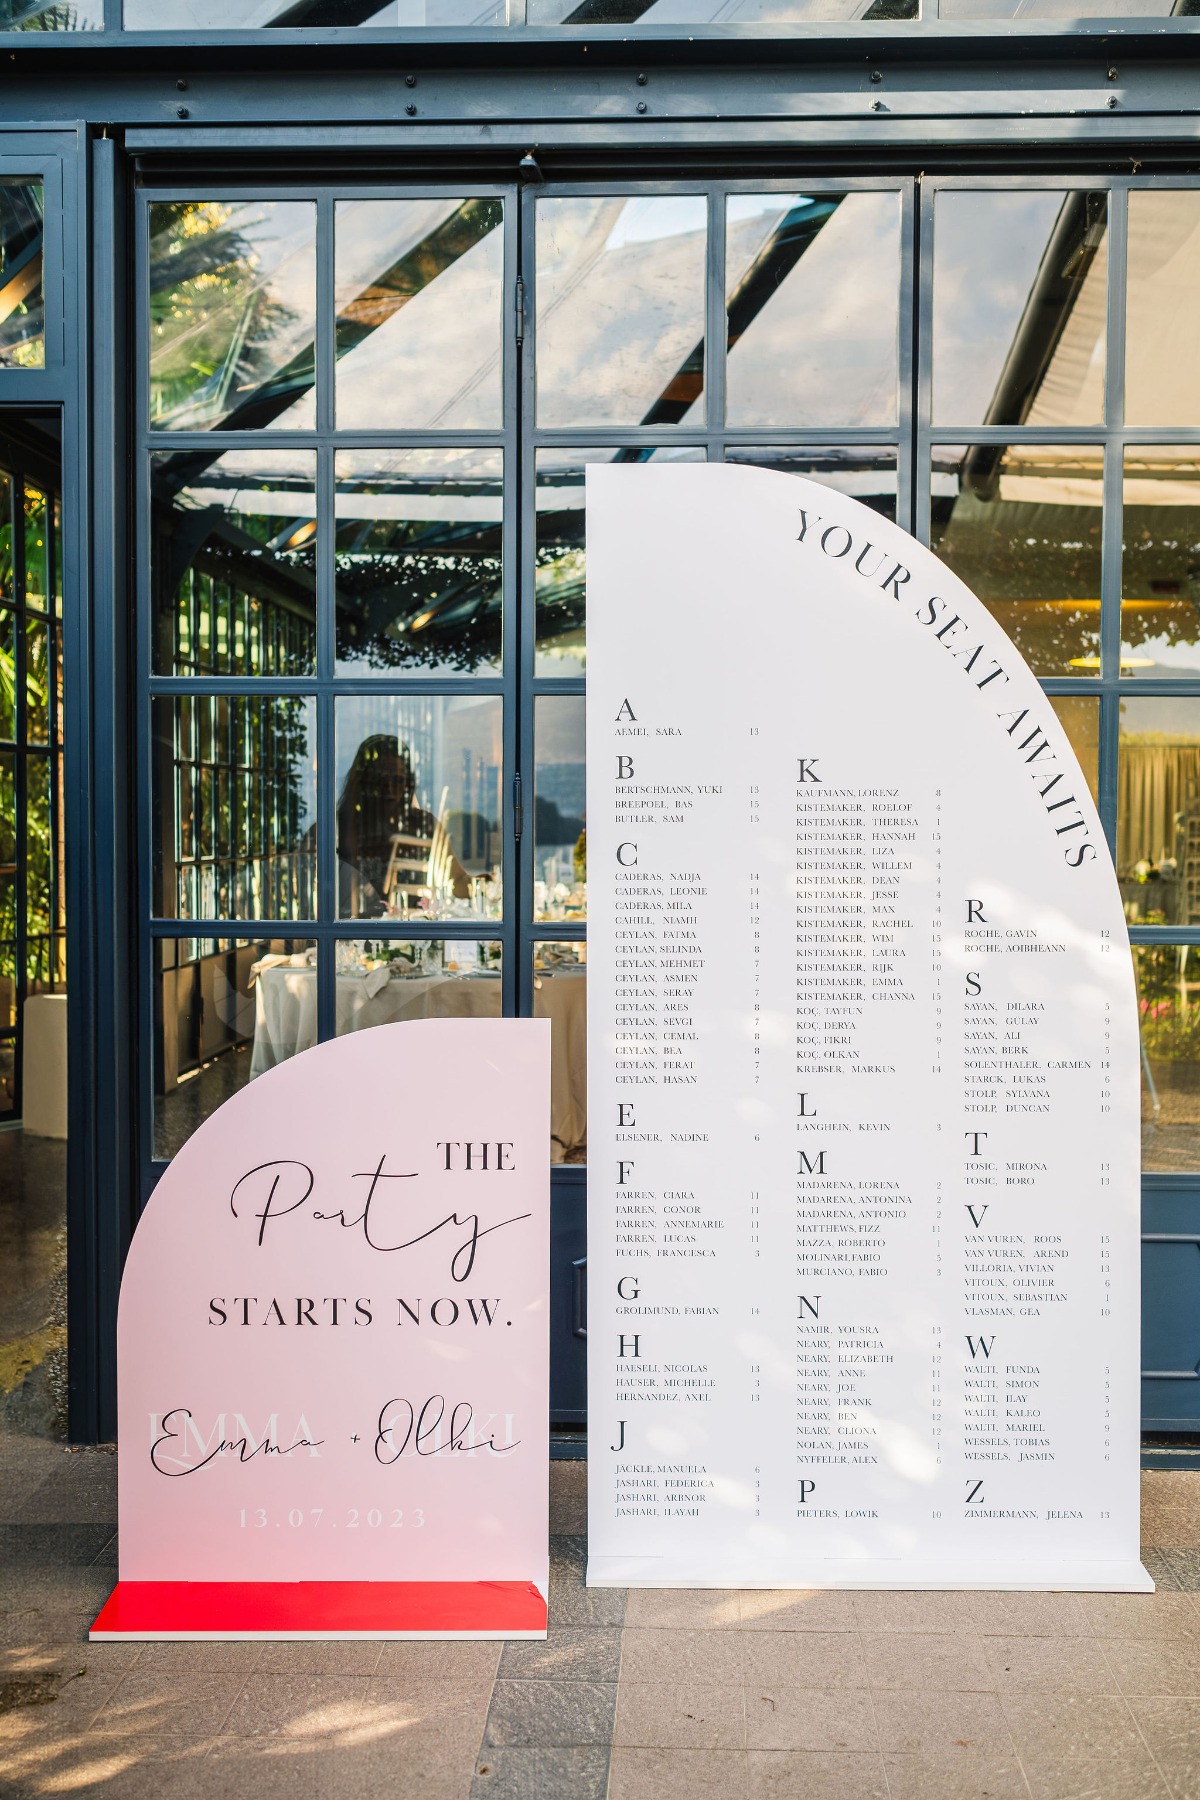 THE
Party
STARTS NOW.
EMMA OLKI
Emma + Olki
13.07.2023
YOUR SEAT AWAITS
A
AEMEI, SARA 13
B
BERTSCHMANN, YUKI 13
BREEPOEL, BAS 15
BUTLER, SAM 15
C
CADERAS, NADJA 14
CADERAS, LEONIE 14
CADERAS, MILA 14
CAHILL, NIAMH 12
CEYLAN, FATMA 8
CEYLAN, SELINDA 8
CEYLAN, MEHMET 7
CEYLAN, ASMEN 7
CEYLAN, SERAY 7
CEYLAN, ARES 8
CEYLAN, SEVGI 7
CEYLAN, CEMAL 8
CEYLAN, BEA 8
CEYLAN, FERAT 7
CEYLAN, HASAN 7
E
ELSENER, NADINE 6
F
FARREN, CIARA 11
FARREN, CONOR 11
FARREN, ANNEMARIE 11
FARREN, LUCAS 11
FUCHS, FRANCESCA 3
G
GROLIMUND, FABIAN 14
H
HAESELI, NICOLAS 13
HAUSER, MICHELLE 3
HERNANDEZ, AXEL 13
J
JÄCKLE, MANUELA 6
JASHARI, FEDERICA 3
JASHARI, ARBNOR 3
JASHARI, ILAYAH 3
K
KAUFMANN, LORENZ 8
KISTEMAKER, ROELOF 4
KISTEMAKER, THERESA 1
KISTEMAKER, HANNAH 15
KISTEMAKER, LIZA 4
KISTEMAKER, WILLEM 4
KISTEMAKER, DEAN 4
KISTEMAKER, JESSE 4
KISTEMAKER, MAX 4
KISTEMAKER, RACHEL 10
KISTEMAKER, WIM 15
KISTEMAKER, LAURA 15
KISTEMAKER, RIJK 10
KISTEMAKER, EMMA 1
KISTEMAKER, CHANNA 15
KOÇ, TAYFUN 9
KOÇ, DERYA 9
KOÇ, FIKRI 9
KOÇ, OLKAN 1
KREBSER, MARKUS 14
L
LANGHEIN, KEVIN 3
M
MADARENA, LORENA 2
MADARENA, ANTONINA 2
MADARENA, ANTONIO 2
MATTHEWS, FIZZ 11
MAZZA, ROBERTO 1
MOLINARI, FABIO 5
MURCIANO, FABIO 3
N
NAMIR, YOUSRA 13
NEARY, PATRICIA 4
NEARY, ELIZABETH 12
NEARY, ANNE 11
NEARY, JOE 11
NEARY, FRANK 12
NEARY, BEN 12
NEARY, CLIONA 12
NOLAN, JAMES 1
NYFFELER, ALEX 6
P
PIETERS, LOWIK 10
R
ROCHE, GAVIN 12
ROCHE, AOIBHEANN 12
S
SAYAN, DILARA 5
SAYAN, GÜLAY 9
SAYAN, ALI 9
SAYAN, BERK 5
SOLENTHALER, CARMEN 14
STARCK, LUKAS 6
STOLP, SYLVANA 10
STOLP, DUNCAN 10
T
TOSIC, MIRONA 13
TOSIC, BORO 13
V
VAN VUREN, ROOS 15
VAN VUREN, AREND 15
VILLORIA, VIVIAN 13
VITOUX, OLIVIER 6
VITOUX, SEBASTIAN 1
VLASMAN, GEA 10
W
WALTI, FUNDA 5
WALTI, SIMON 5
WALTI, ILAY 5
WALTI, KALEO 5
WALTI, MARIEL 9
WESSELS, TOBIAS 6
WESSELS, JASMIN 6
Z
ZIMMERMANN, JELENA 13